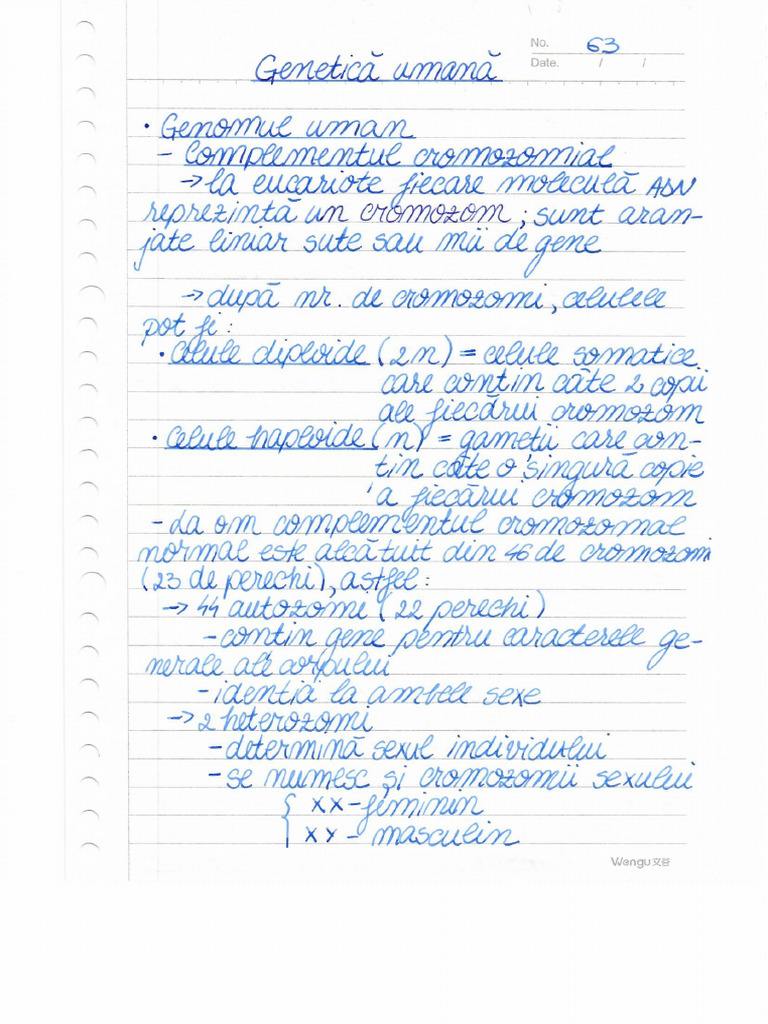 No. 63
Date. / /
Genetică umană
• Genomul uman
- Complementul cromozomial
→ la eucariote fiecare moleculă ADN
reprezintă un cromozom; sunt aran-
jate liniar sute sau mii de gene
→ după nr. de cromozomi, celulele
pot fi:
• celule diploide (2n) = celule somatice
care conțin câte 2 copii
ale fiecărui cromozom
• celule haploide (n) = gameții care con-
țin câte o singură copie
a fiecărui cromozom
- La om complementul cromozomal
normal este alcătuit din 46 de cromozomi
(23 de perechi), astfel:
→ 44 autozomi (22 perechi)
- conțin gene pentru caracterele ge-
nerale ale corpului
- identici la ambele sexe
→ 2 heterozomi
- determină sexul individului
- se numesc și cromozomii sexului
{ XX - feminin
XY - masculin
Wengu文谷